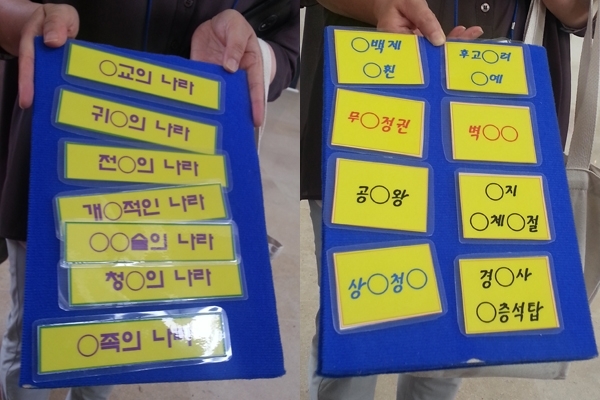 ○교의 나라
귀○의 나라
전○의 나라
개○적인 나라
○○술의 나라
청○의 나라
○족의 나라
○백제
○훤
후고○려
○예
무○정권
벽○○
공○왕
○지
○체○절
상○청○
경○사
○층석탑